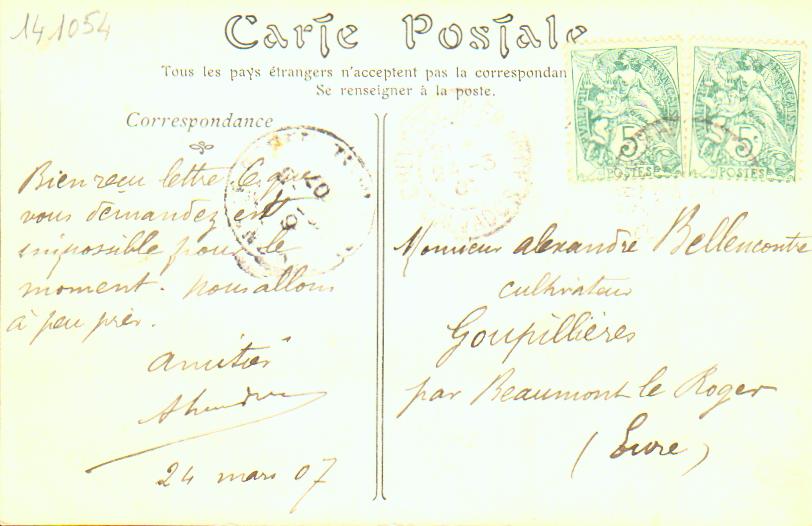 141054
Carte Postale
Tous les pays étrangers n'acceptent pas la correspondan
Se renseigner à la poste.
Correspondance
Bien reçu lettre Ce que
vous demandez est
impossible pour le
moment. Nous allons
à peu près.
Amitiés
24 mars 07
Monsieur Alexandre Bellencontre
cultivateur
Goupillières
par Beaumont le Roger
(Eure)
5 POSTES
5 POSTES